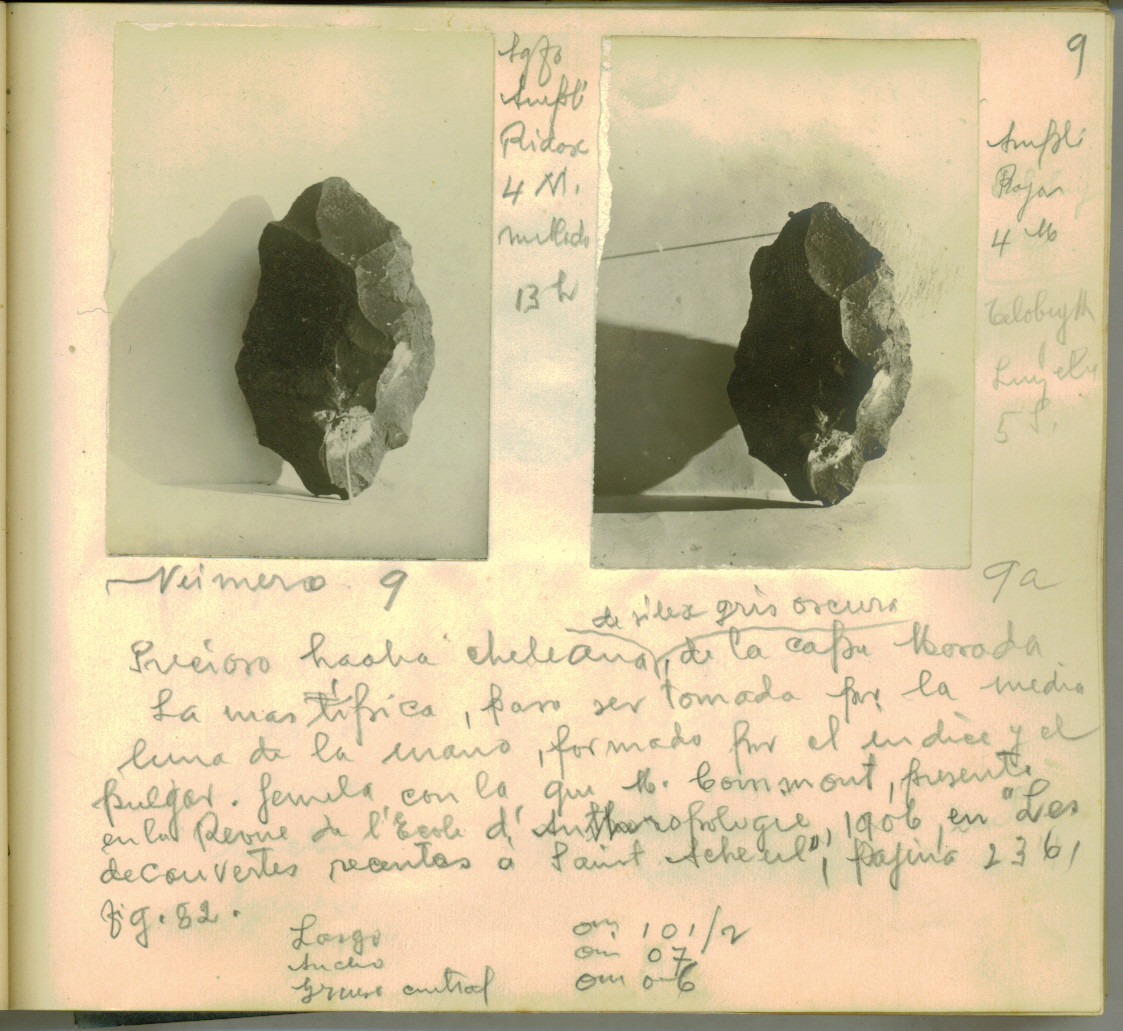 9
Ampli
4 M.
13 h
Ampli
4 M
5 S.
Número 9
9a
de silex gris oscuro
Precioso hacha cheleana, de la capa Morada
La mas típica, para ser tomada por la media
luna de la mano, formado por el indice y el
pulgar. Gemela con la que M. Commont, presenta
en la Revue de l'Ecole d'Anthropologie, 1906, en "Les
decouvertes recentes a Saint Acheul", pagina 236,
fig. 82.
Largo om 101/2
Ancho om 07
Grueso central om 06